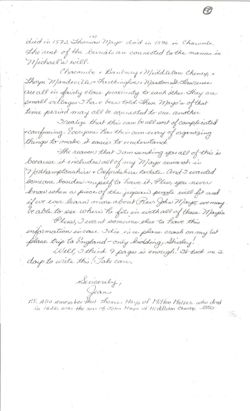 died in 1572. Thomas Mayo died in 1590 in Chacombe.
The rest of the Devis? are connected to the manner in
Michael's will.
Chacombe & Banbury & Middleton Cheney &
Thorpe Mandeville & Farthinghoe & Marston St. Lawrence
are all in fairly close proximity to each other. They are
small villages. I have been told these Mayo's of that
time period may all be connected to one another.
I realize that this can be all sort of complicated
& confusing. Everyone has their own way of organizing
things to make it easier to understand.
The reason that I am sending you all of this is
because it includes all of my Mayo research in
Northamptonshire & Oxfordshire to date. And I wanted
someone besides myself to have it. Plus, you never
know when a piece of the jigsaw puzzle will fit and
if we ever learn more about Rev. John Mayo, we may
be able to see where he fits in with all these Mayo's.
Plus, I want someone else to have this
information in case I die in a plane crash on my last
plane trip to England - only kidding, Shirley!
Well, I think 9 pages is enough! It took me 2
days to write this! Take care.
Sincerely,
Jean
P.S. Also remember that Thomas Mayo of
who died
in 1620 was the son of John Mayo of Middleton Cheney